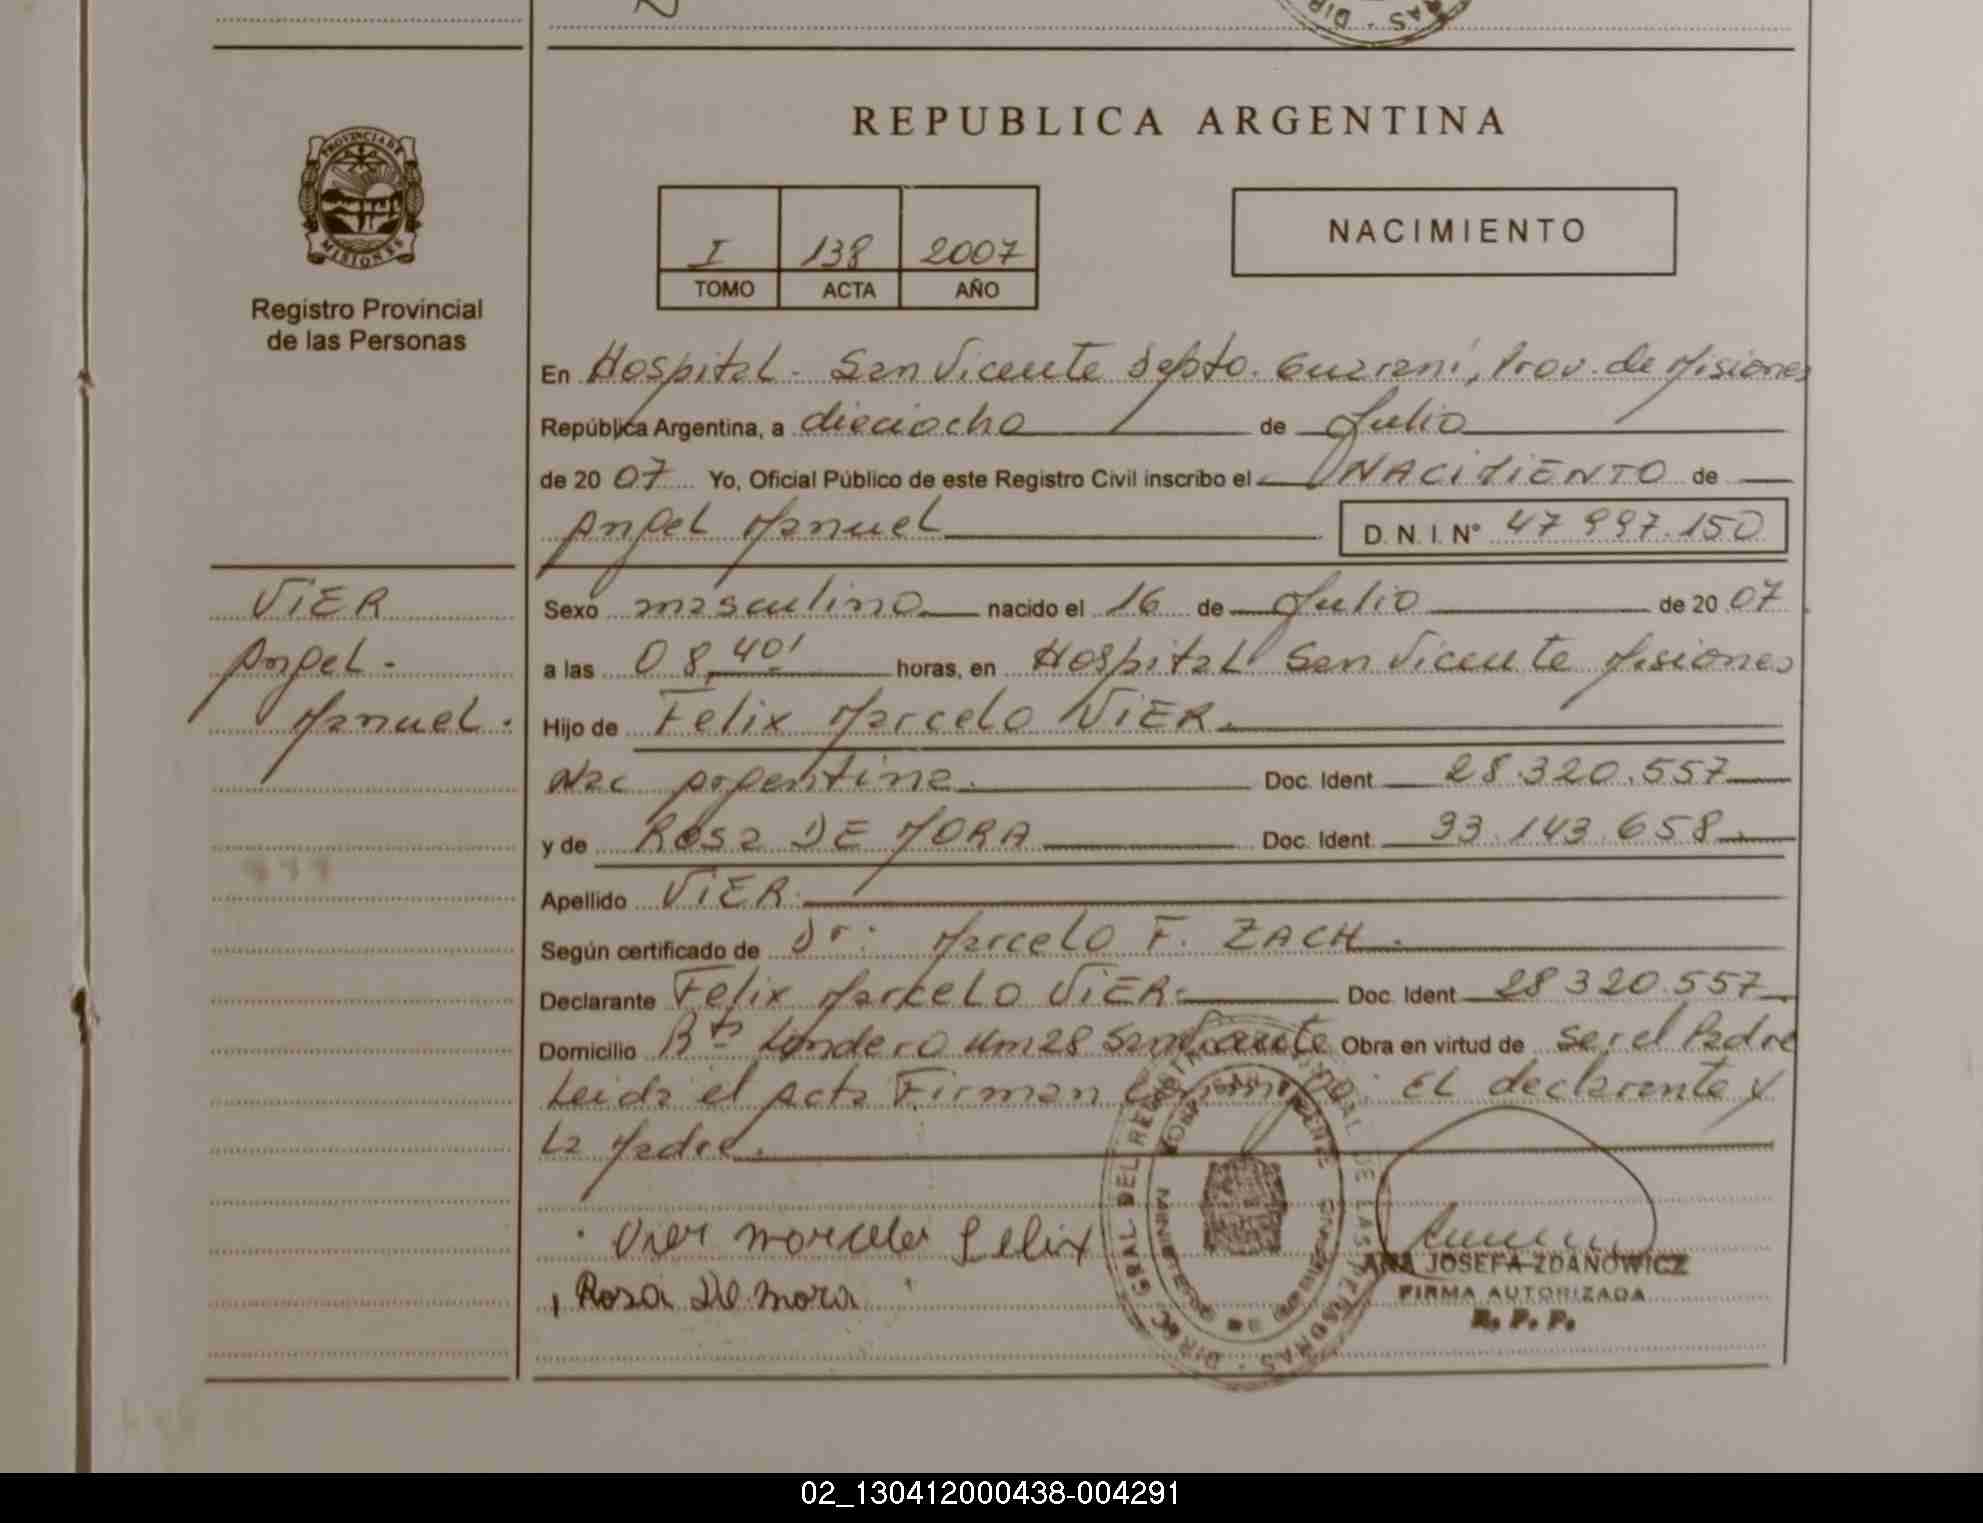 REPUBLICA ARGENTINA
PROVINCIA DE
MISIONES
Registro Provincial
de las Personas
I 138 2007
TOMO ACTA AÑO
NACIMIENTO
En Hospital - San Vicente Depto. Guarani, Prov. de Misiones
República Argentina, a dieciocho de Julio
de 2007 Yo, Oficial Público de este Registro Civil inscribo el NACIMIENTO de
Angel Manuel D. N. I. Nº 47 997.150
VIER
Angel -
Manuel.
Sexo masculino nacido el 16 de Julio de 2007
a las 08,40' horas, en Hospital San Vicente Misiones
Hijo de Felix Marcelo VIER.
Nac Argentina. Doc. Ident 28.320.557
y de Rosa DE MORA Doc. Ident. 93.143.658
Apellido VIER.
Según certificado de Dr: Marcelo F. ZACH.
Declarante Felix Marcelo VIER. Doc. Ident 28 320.557
Domicilio Km 28 San Vicente Obra en virtud de ser el Padre
Leida el Acta Firman El declarante y
La Madre.
Vier Marcelo Felix
Rosa De Mora
ANA JOSEFA ZDANOWICZ
FIRMA AUTORIZADA
R. P. P.
DIREC GRAL DEL REGISTRO PROVINCIAL DE LAS PERSONAS
02_130412000438-004291